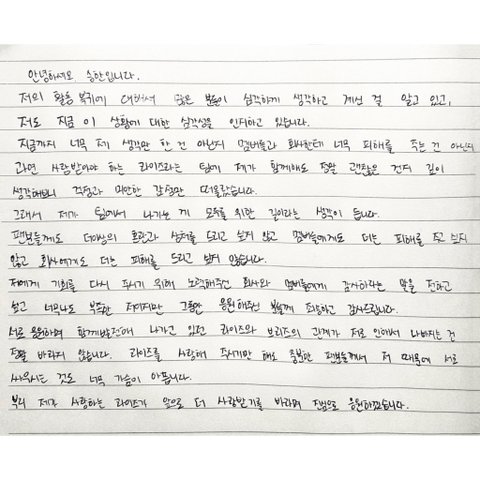 안녕하세요 승한입니다.
저의 활동 복귀에 대해서 많은 분들이 심각하게 생각하고 계신 걸 알고 있고,
저도 지금 이 상황에 대한 심각성을 인지하고 있습니다.
지금까지 너무 제 생각만 한 건 아닌지 멤버들과 회사한테 너무 피해를 주는 건 아닌지
과연 사랑받아야 하는 라이즈라는 팀에 제가 함께해도 정말 괜찮은 건지 깊이
생각해보니 걱정과 미안한 감정만 떠올랐습니다.
그래서 제가 팀에서 나가는 게 모두를 위한 길이라는 생각이 듭니다.
팬분들께도 더이상의 혼란과 상처를 드리고 싶지 않고 멤버들에게도 더는 피해를 주고 싶지
않고 회사에게도 더는 피해를 드리고 싶지 않습니다.
저에게 기회를 다시 주시기 위해 노력해주신 회사와 멤버들에게 감사하다는 말을 전하고
싶고 너무나도 부족한 저이지만 그동안 응원해주신 분들께 죄송하고 감사드립니다.
서로 응원하며 함께 발전해 나가고 있던 라이즈와 브리즈의 관계가 저로 인해서 나빠지는 건
정말 바라지 않습니다. 라이즈를 사랑해 주시기만 해도 충분한 팬분들께서 저 때문에 서로
싸우시는 것도 너무 가슴이 아픕니다.
부디 제가 사랑하는 라이즈가 앞으로 더 사랑받기를 바라며 진심으로 응원하겠습니다.